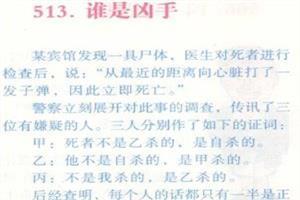 513. 谁是凶手
某宾馆发现一具尸体，医生对死者进行
检查后，说：“从最近的距离向心脏打了一
发子弹，因此立即死亡。”
警察立刻展开对此事的调查，传讯了三
位有嫌疑的人。三人分别作了如下的证词：
甲：死者不是乙杀的，是自杀的。
乙：他不是自杀的，是甲杀的。
丙：不是我杀的，是乙杀的。
后经查明，每个人的话都只有一半是正